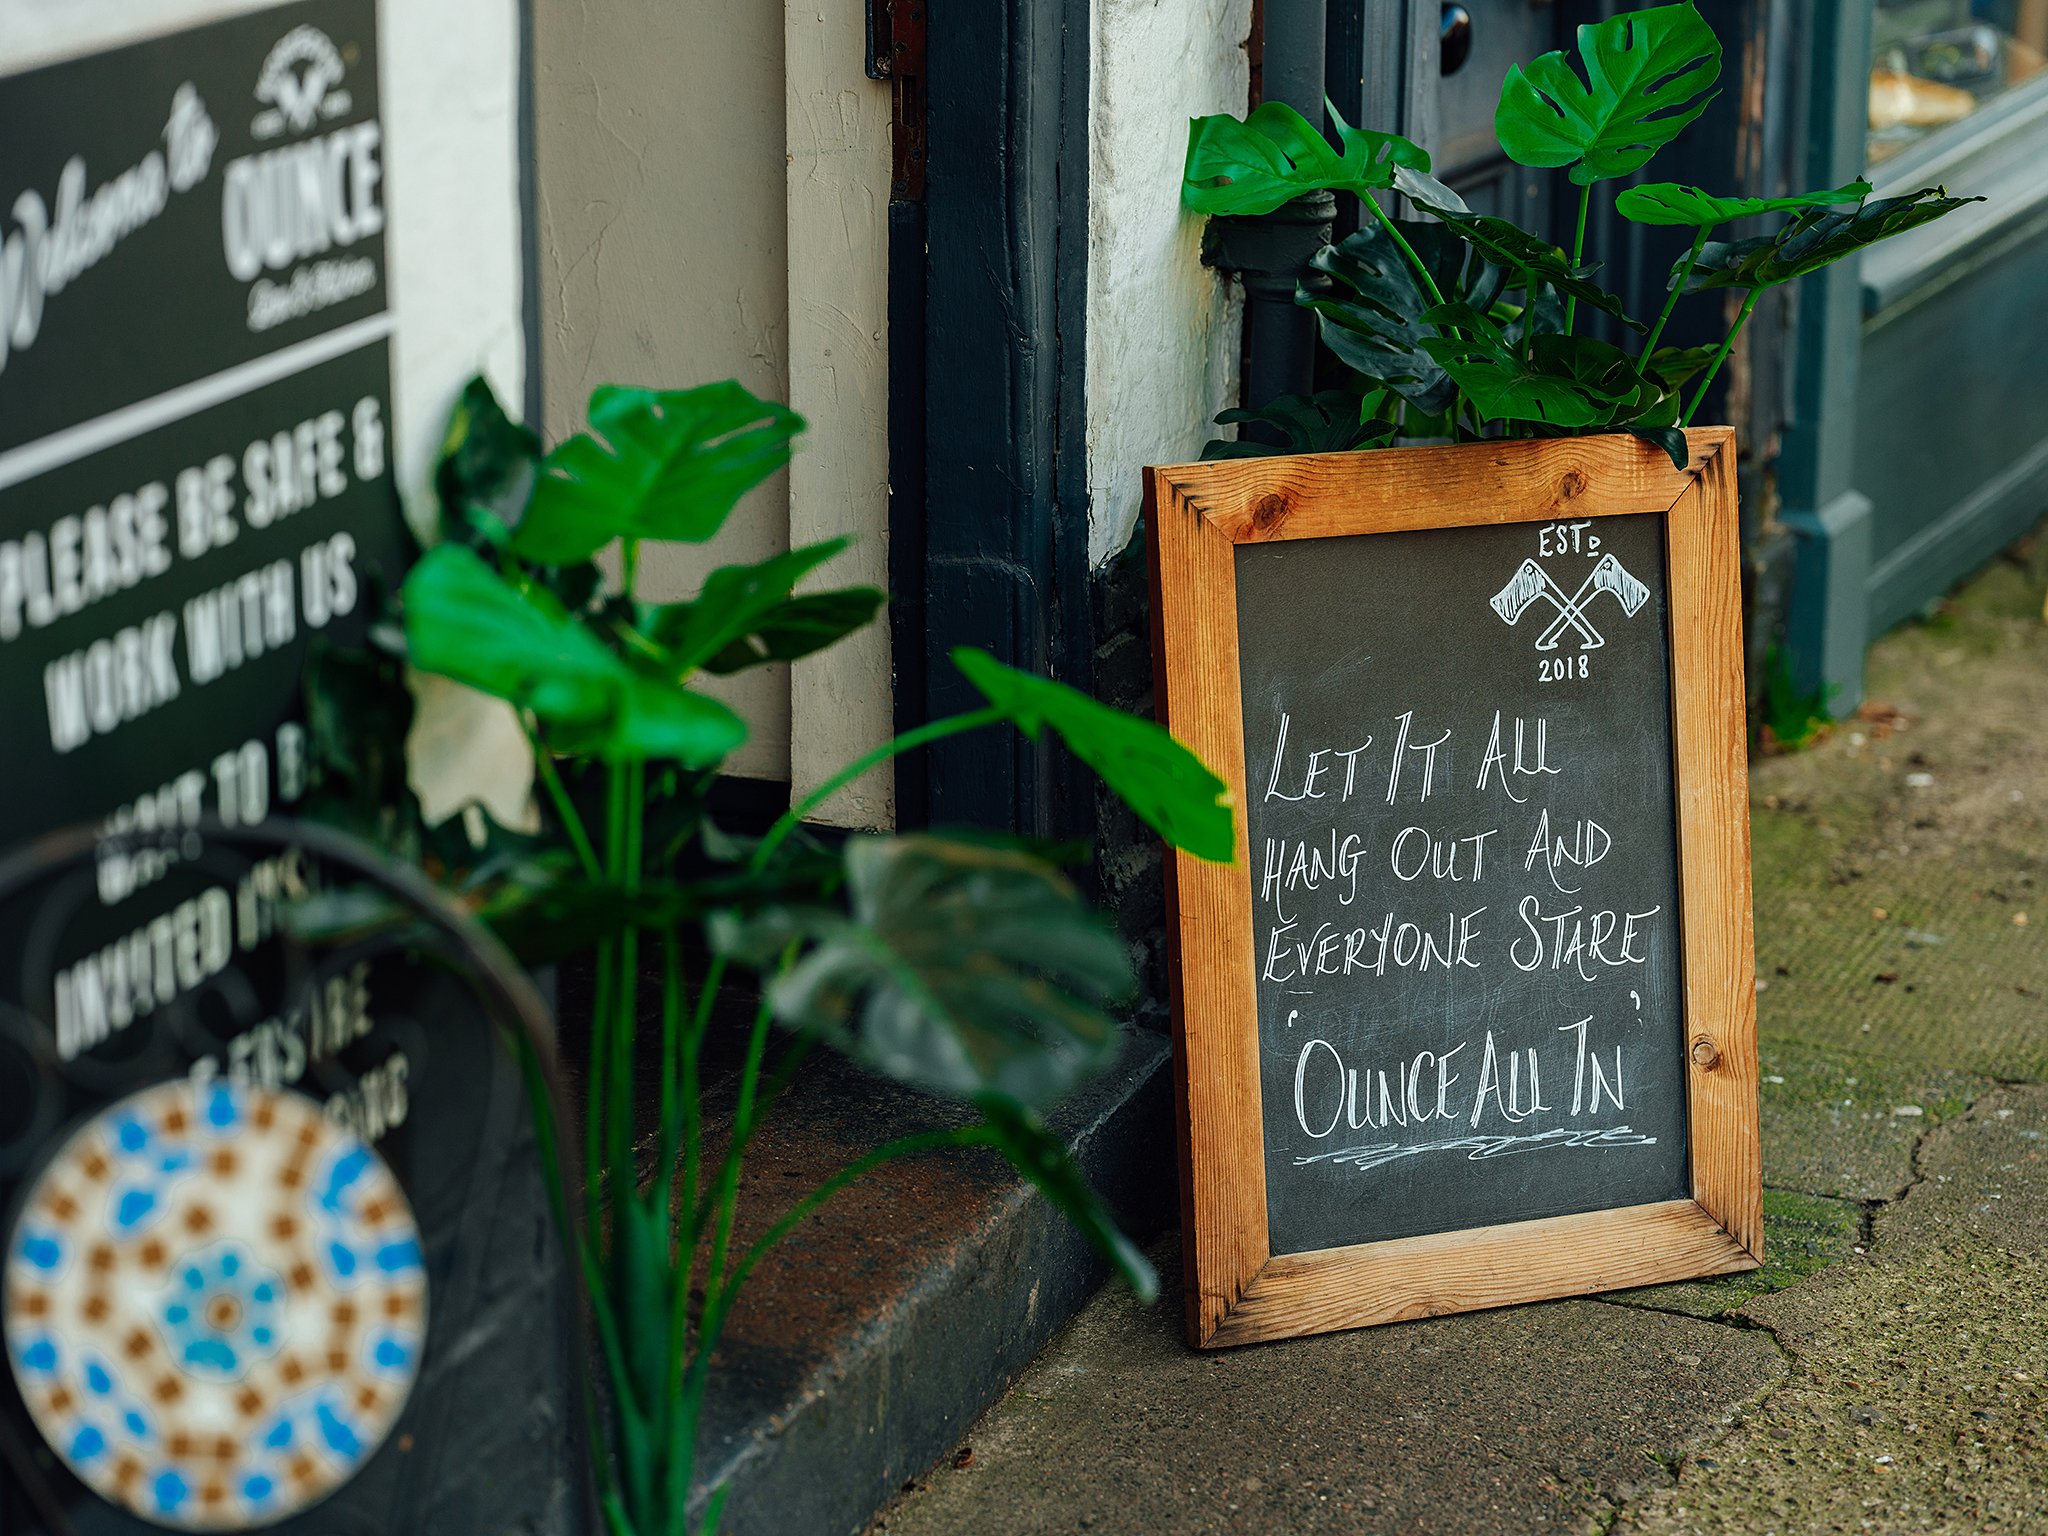 Welcome to
OUNCE
PLEASE BE SAFE &
WORK WITH US
WAIT TO
INVITED
ESTD
2018
LET IT ALL
HANG OUT AND
EVERYONE STARE
'OUNCE ALL IN'